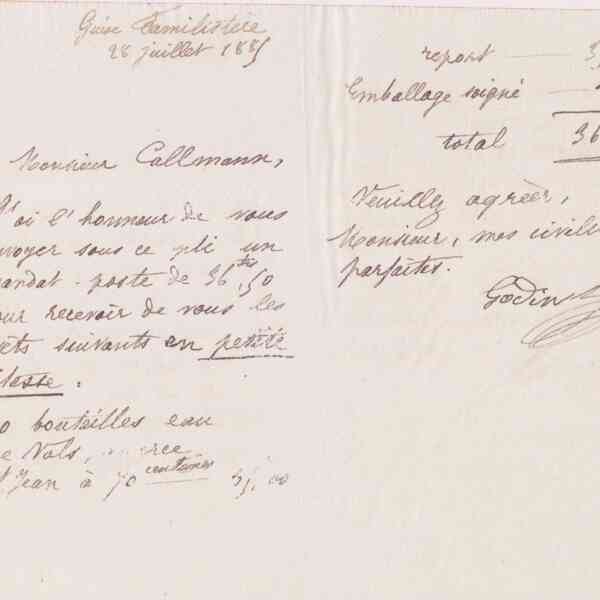 Guise Familistère
28 juillet 1885
Monsieur Callmann,
J'ai l'honneur de vous
nvoyer sous ce pli un
mandat-poste de 36 frs,50
our recevoir de vous les
ets suivants en petite
itesse :
0 bouteilles eau
e Vals,
t Jean à 70 centimes 35,00
report — 3
Emballage soigné —
total 36
Veuillez agréer,
Monsieur, mes civili
parfaites.
Godin